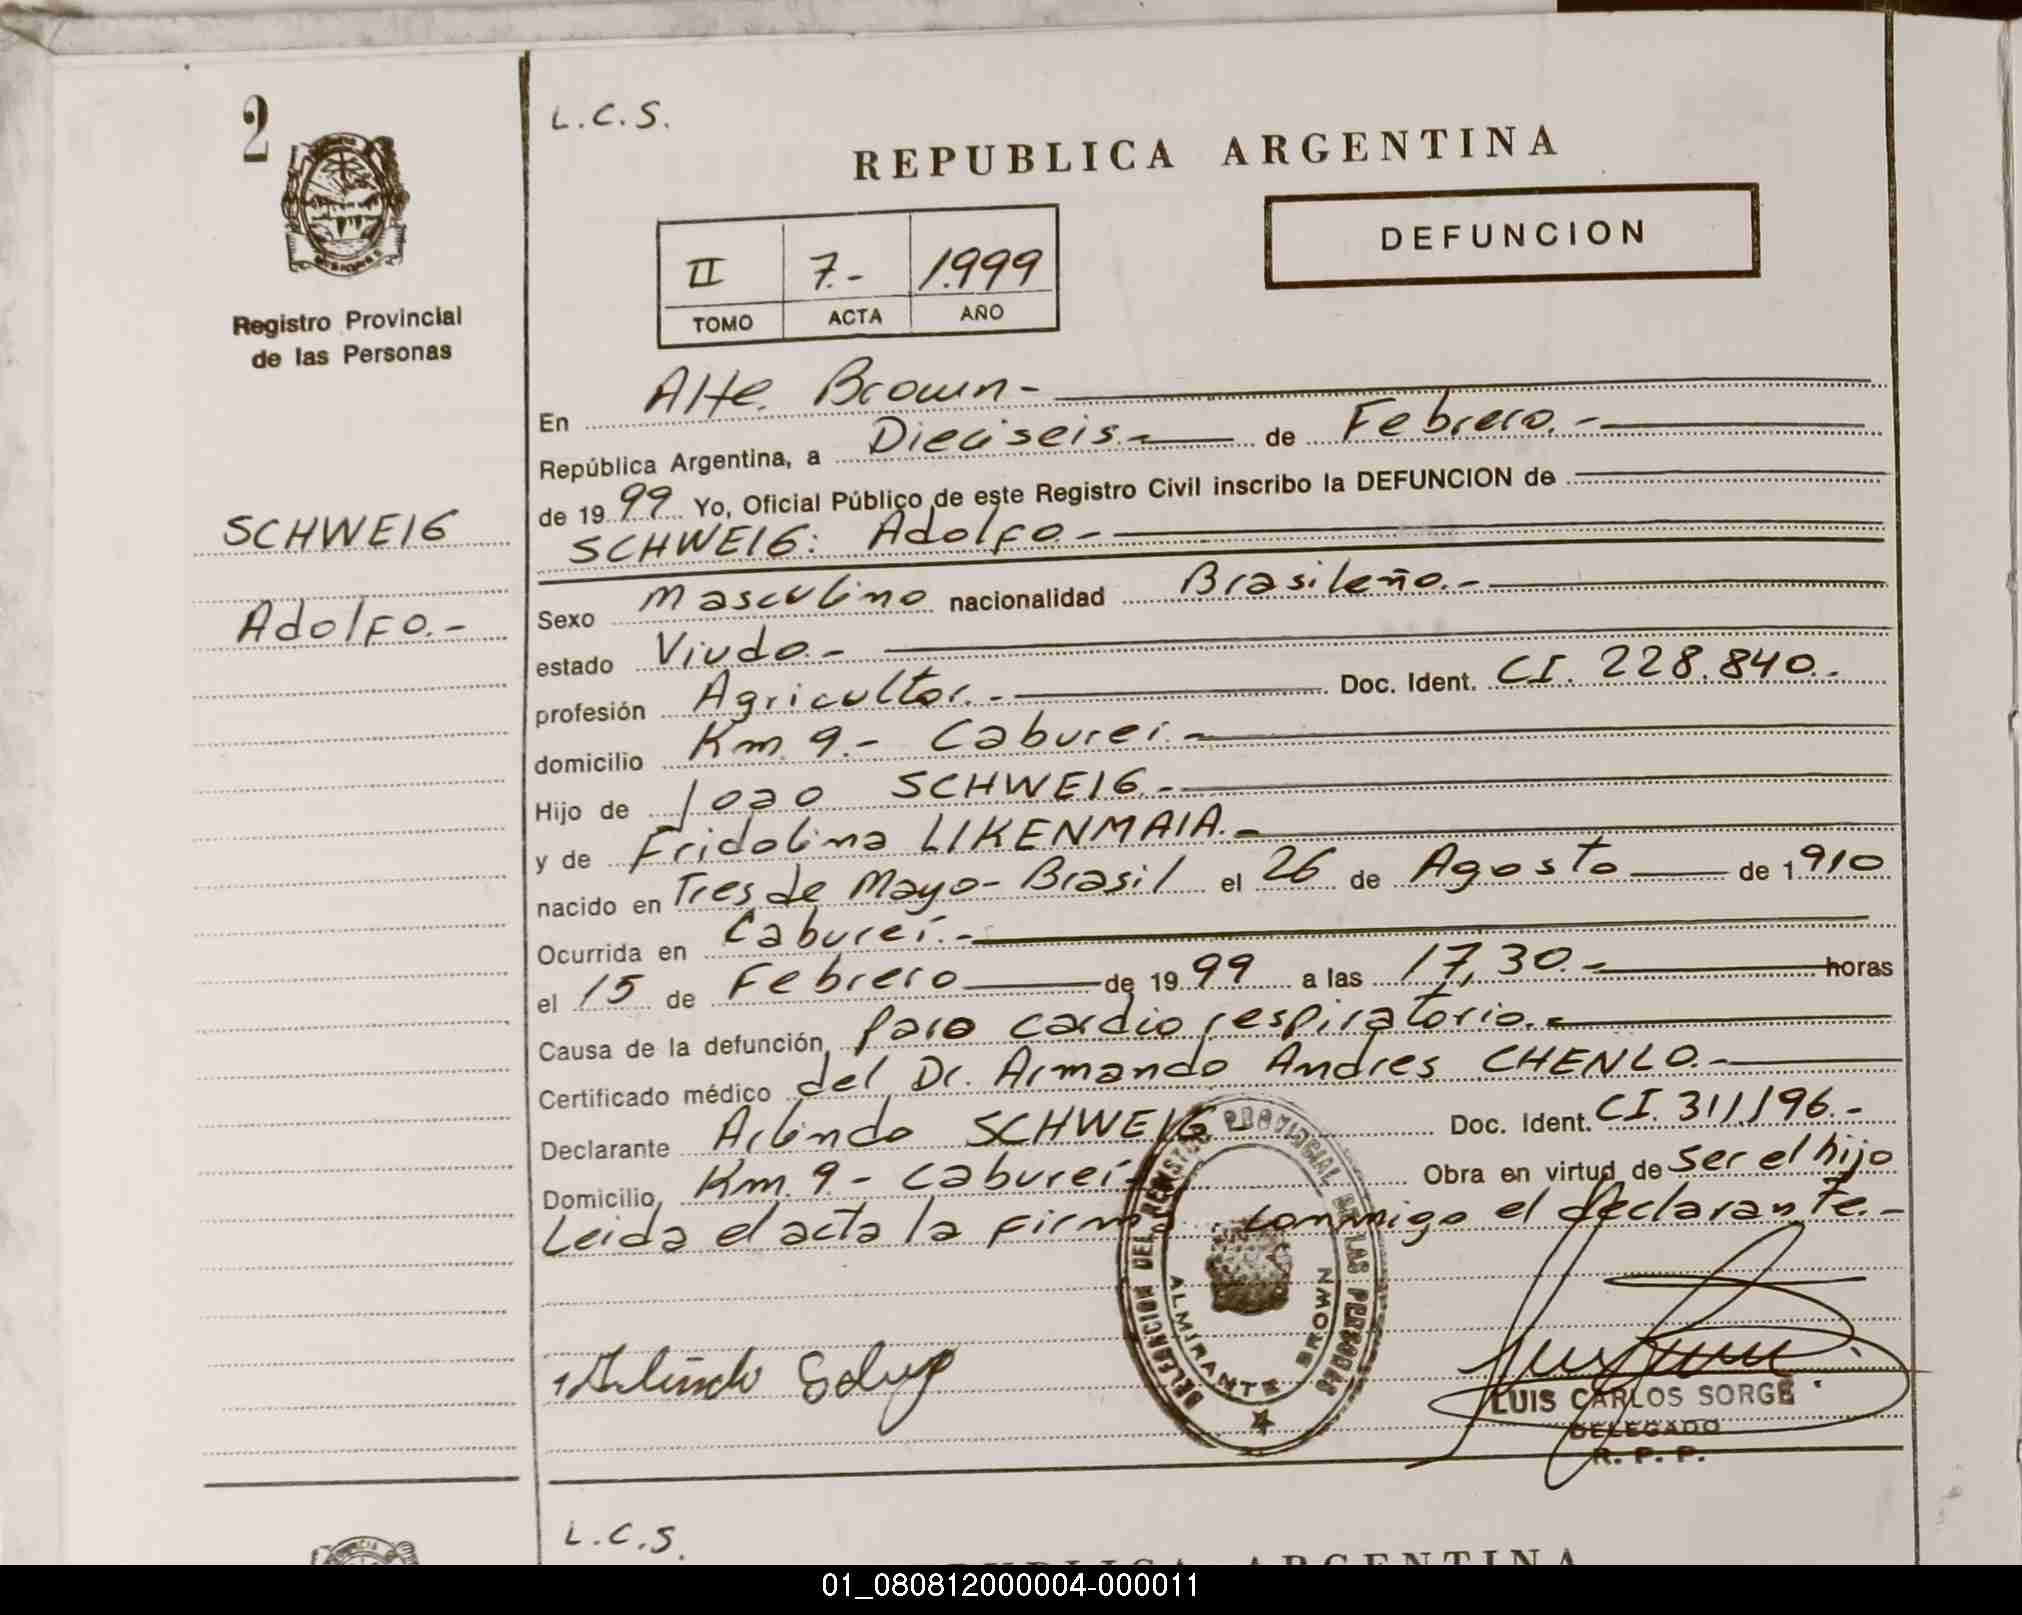 2
L.C.S.
REPUBLICA ARGENTINA
DEFUNCION
II 7.- 1.999
TOMO ACTA AÑO
Registro Provincial
de las Personas
SCHWEIG
Adolfo.-
En Alte. Brown-
República Argentina, a Dieciseis.- de Febrero.-
de 1999 Yo, Oficial Público de este Registro Civil inscribo la DEFUNCION de
SCHWEIG: Adolfo-
Sexo Masculino nacionalidad Brasileño.-
estado Viudo.-
profesión Agricultor.- Doc. Ident. CI. 228.840.-
domicilio Km. 9.- Cabureí.-
Hijo de Joao SCHWEIG.-
y de Fridolina LIKENMAIA.-
nacido en Tres de Mayo- Brasil el 26 de Agosto de 1910
Ocurrida en Cabureí.-
el 15 de Febrero de 1999 a las 17,30.- horas
Causa de la defunción Paro cardio respiratorio.-
Certificado médico del Dr. Armando Andres CHENLO.-
Declarante Arlindo SCHWEIG- Doc. Ident. CI. 311.196.-
Domicilio Km. 9.- Cabureí- Obra en virtud de ser el hijo
Leida el acta la firma conmigo el declarante.-
DELEGACION DEL REGISTRO PROVINCIAL DE LAS PERSONAS
ALMIRANTE BROWN
Arlindo
LUIS CARLOS SORGE
DELEGADO
R. P. P.
L.C.S.
REPUBLICA ARGENTINA
01_080812000004-000011